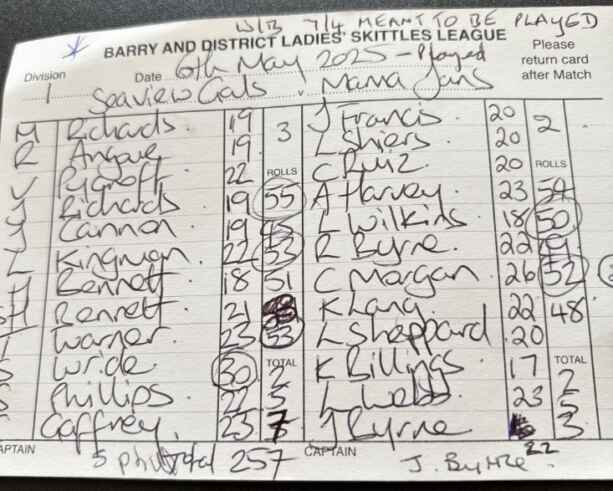 W/B 7/4 MEANT TO BE PLAYED
BARRY AND DISTRICT LADIES' SKITTLES LEAGUE
Please return card after Match
Division 1 Date 6th May 2025 - Played
Seaview Gals v Mama Jans
M Richards 19 3 J Francis 20 2
R Angove 19 L Shiers 20
V Pycroft 22 ROLLS C Ruiz 20 ROLLS
Y Richards 19 55 A Harvey 23 54
J Cannon 19 45 L Wilkins 18 50
L Kingman 22 53 R Byrne 22 49
H Bennett 18 51 C Morgan 26 52
H Bennett 21 K Lang 22 48
T Warner 23 53 L Sheppard 20
S Wride 30 TOTAL K Billings 17 TOTAL
S Phillips 22 L Webb 23 2
Gaffrey 23 7 J Byrne 22 3
CAPTAIN total 257 CAPTAIN J. Byrne